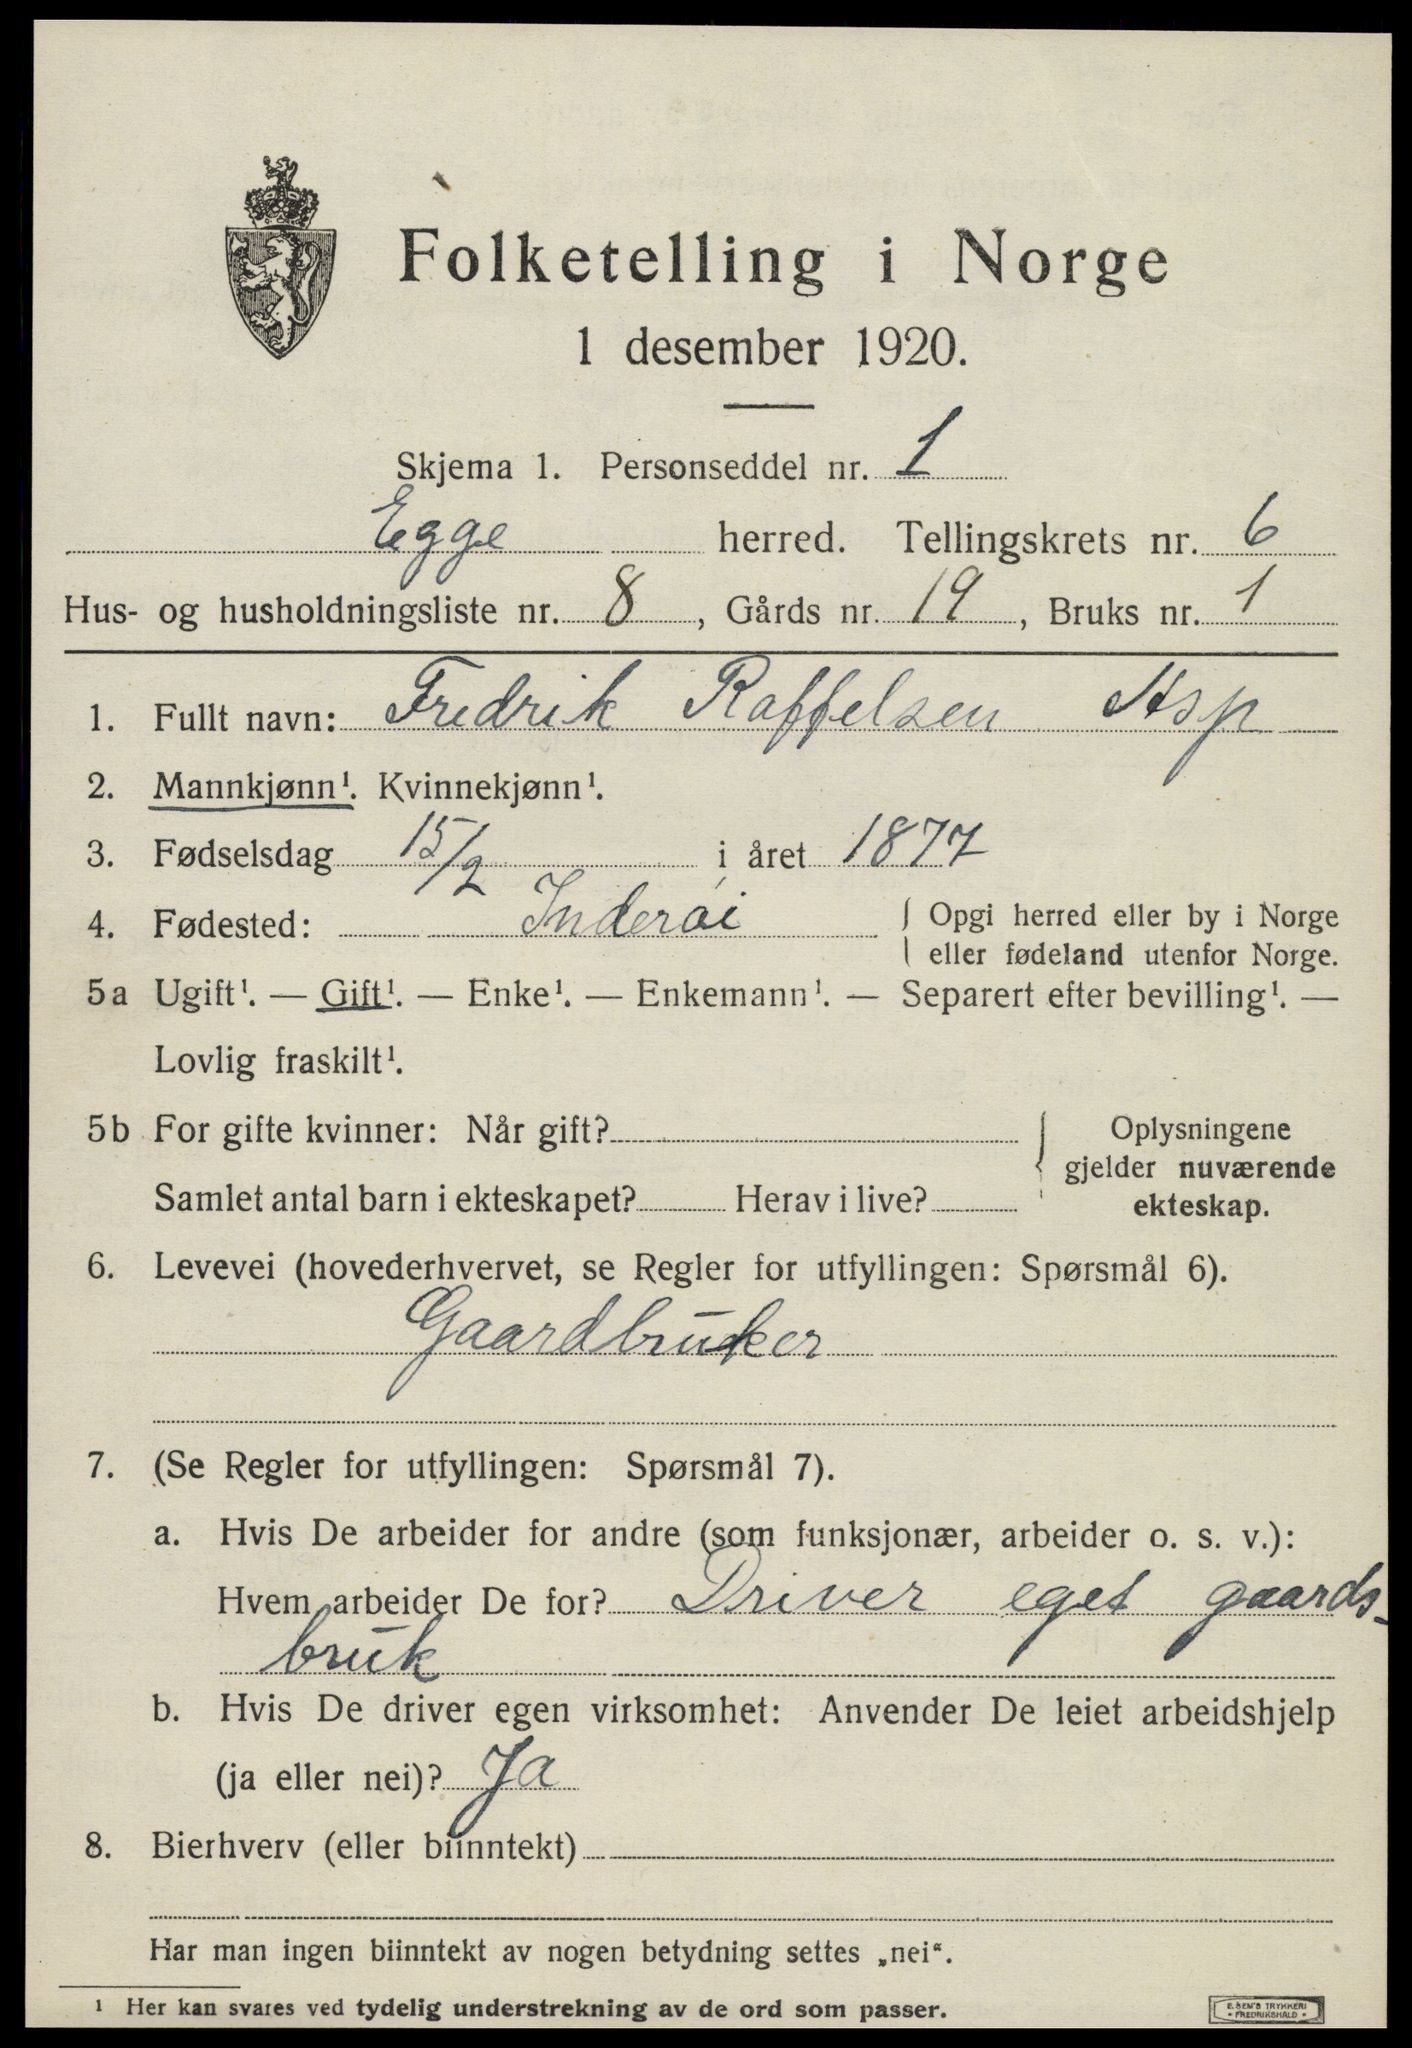 Folketelling i Norge
1 desember 1920.
Skjema 1. Personseddel nr. 1
Egge herred. Tellingskrets nr. 6
Hus- og husholdningsliste nr. 8, Gårds nr. 19, Bruks nr. 1
1. Fullt navn: Fredrik Raffelsen Asp
2. Mannkjønn¹. Kvinnekjønn¹.
3. Fødselsdag 15/2 i året 1877
4. Fødested: Inderøi { Opgi herred eller by i Norge
eller fødeland utenfor Norge.
5a Ugift¹. — Gift¹. — Enke¹. — Enkemann¹. — Separert efter bevilling¹. —
Lovlig fraskilt¹.
5b For gifte kvinner: Når gift?
Samlet antal barn i ekteskapet? Herav i live?
Oplysningene
gjelder nuværende
ekteskap.
6. Levevei (hovederhvervet, se Regler for utfyllingen: Spørsmål 6).
Gaardbruker
7. (Se Regler for utfyllingen: Spørsmål 7).
a. Hvis De arbeider for andre (som funksjonær, arbeider o. s. v.):
Hvem arbeider De for? Driver eget gaards-
bruk
b. Hvis De driver egen virksomhet: Anvender De leiet arbeidshjelp
(ja eller nei)? Ja
8. Bierhverv (eller biinntekt)
Har man ingen biinntekt av nogen betydning settes „nei“.
¹ Her kan svares ved tydelig understrekning av de ord som passer.
E. SEM'S TRYKKERI
• FREDRIKSHALD •